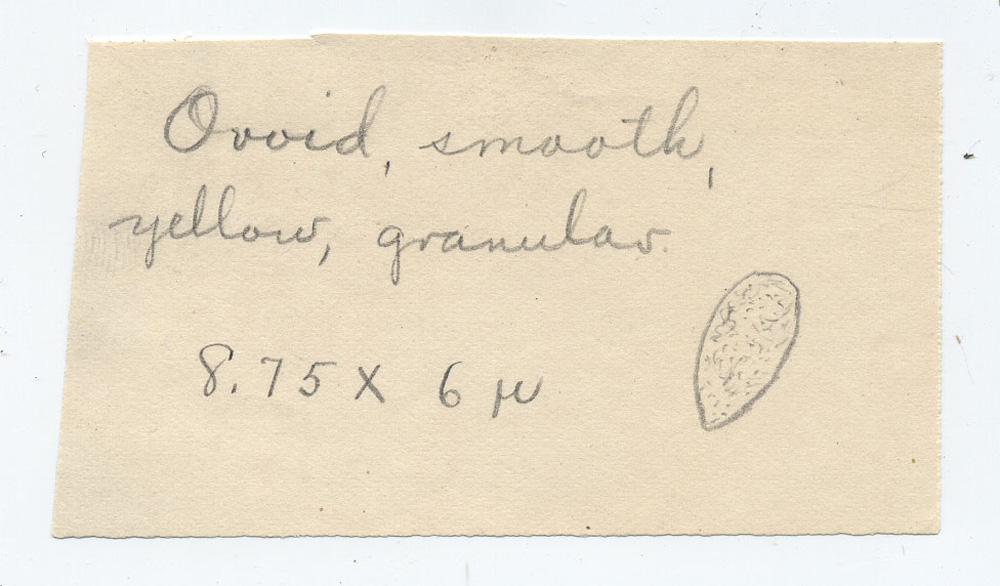 Ovoid, smooth,
yellow, granular.
8.75 X 6 μ